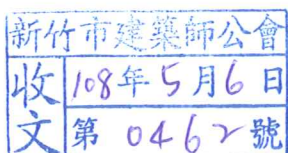 新竹市建築師公會
收文
108年5月6日
第 0462 號